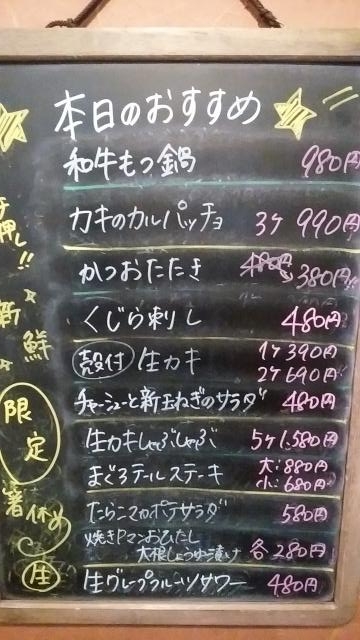 本日のおすすめ
和牛もつ鍋 980円
カキのカルパッチョ 3ケ 990円
かつおたたき 480円 380円
くじら刺し 480円
殻付 生カキ 1ケ 390円
2ケ 690円
チャーシューと新玉ねぎのサラダ 480円
生カキしゃぶしゃぶ 5ケ 1.580円
まぐろテールステーキ 大:880円
小:680円
たらこマカポテサラダ 580円
焼きPマンおひたし
大根しょうゆ漬け 各280円
生グレープフルーツサワー 480円
押し!!
新鮮
限定
箸休め
生